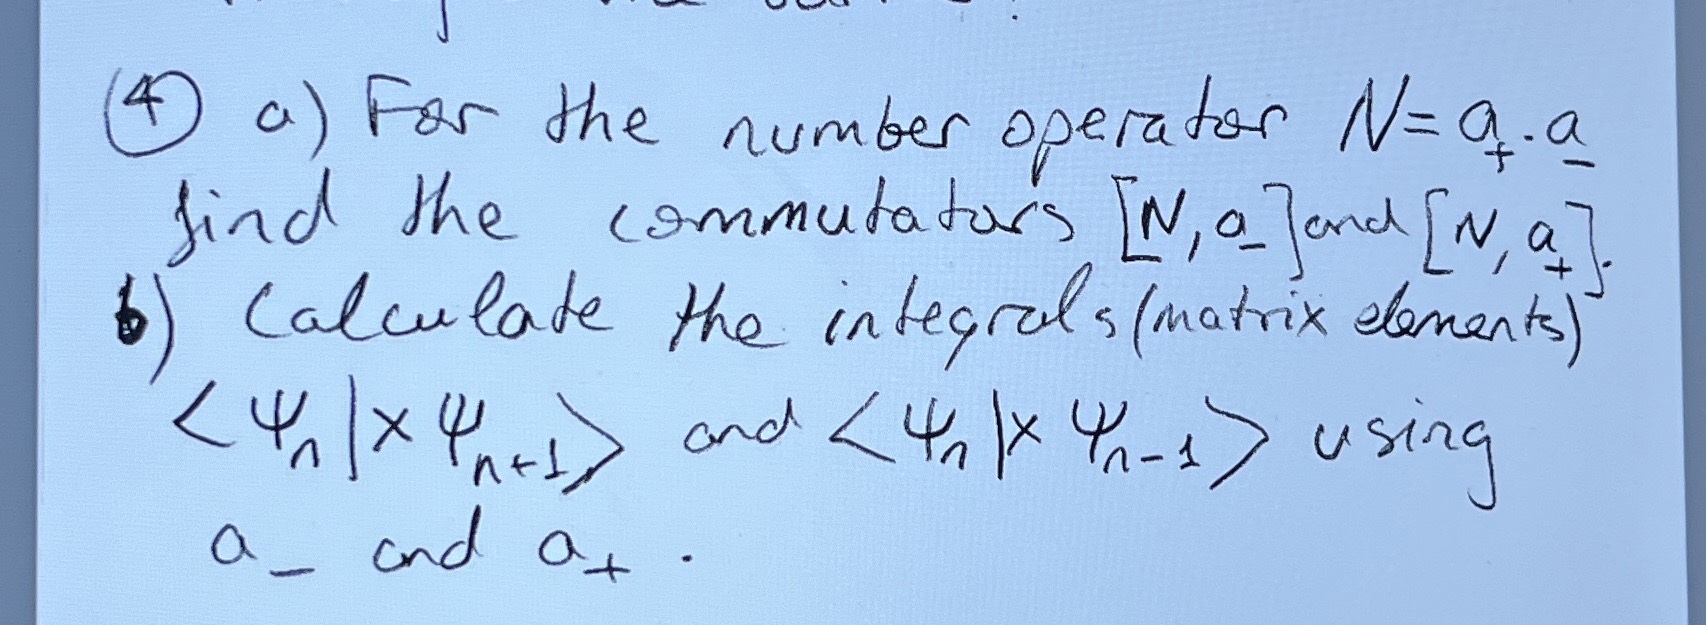 ④ a) For the number operator N = a₊·a₋
find the commutators [N, a₋] and [N, a₊].
b) Calculate the integrals (matrix elements)
<ψₙ|x ψₙ₊₁> and <ψₙ|x ψₙ₋₁> using
a₋ and a₊.